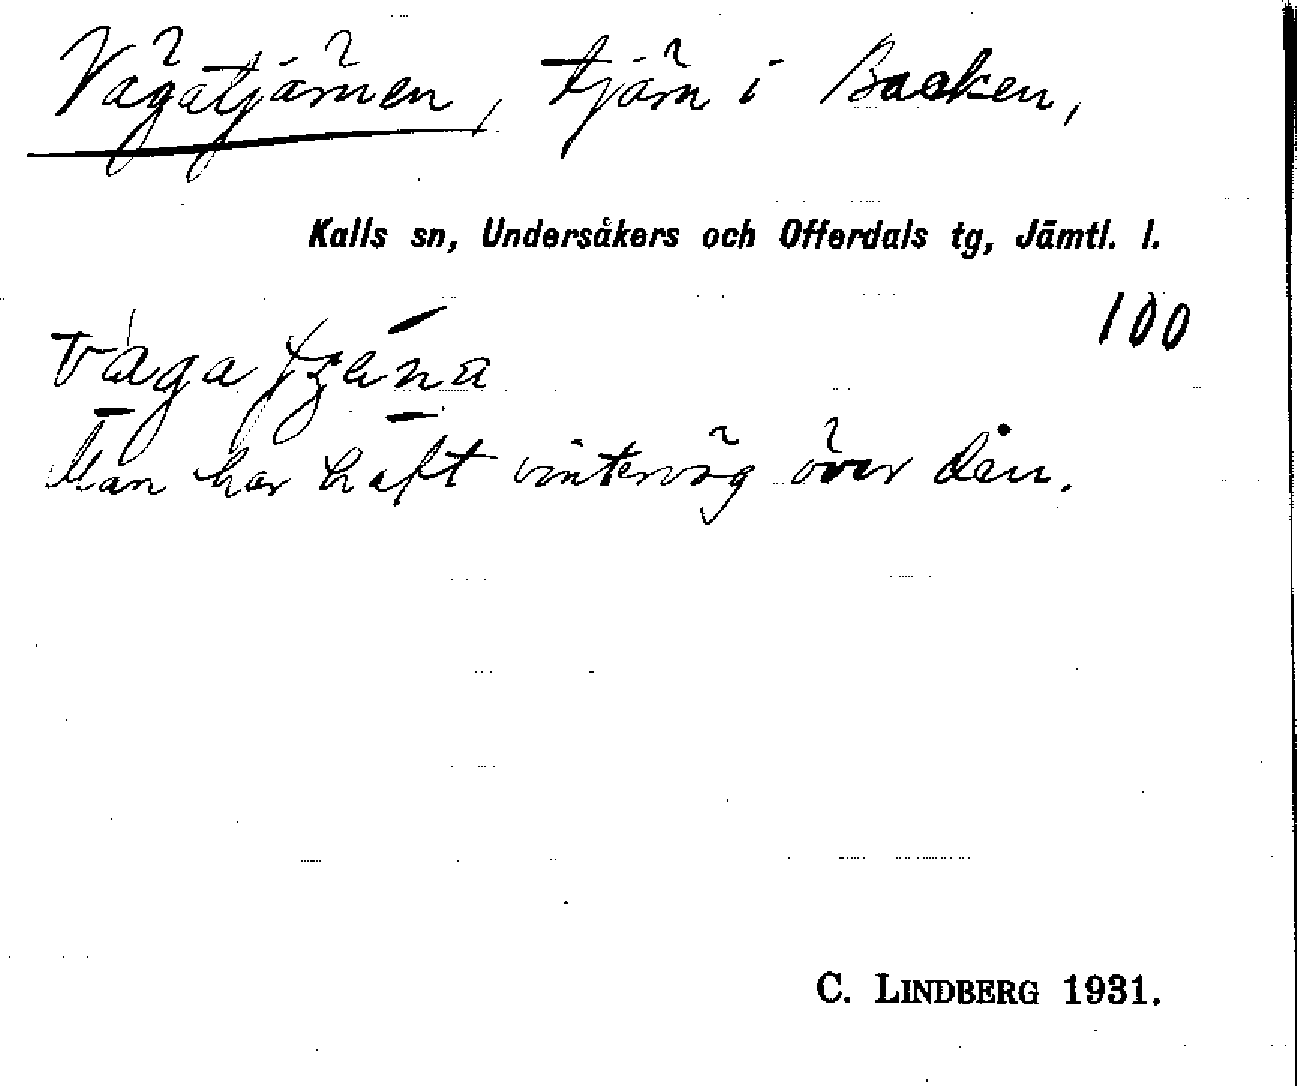 Vägatjärnen, tjärn i Backen,
Kalls sn, Undersåkers och Offerdals tg, Jämtl. l.
100
Man har haft vinterväg över den.
C. LINDBERG 1931.